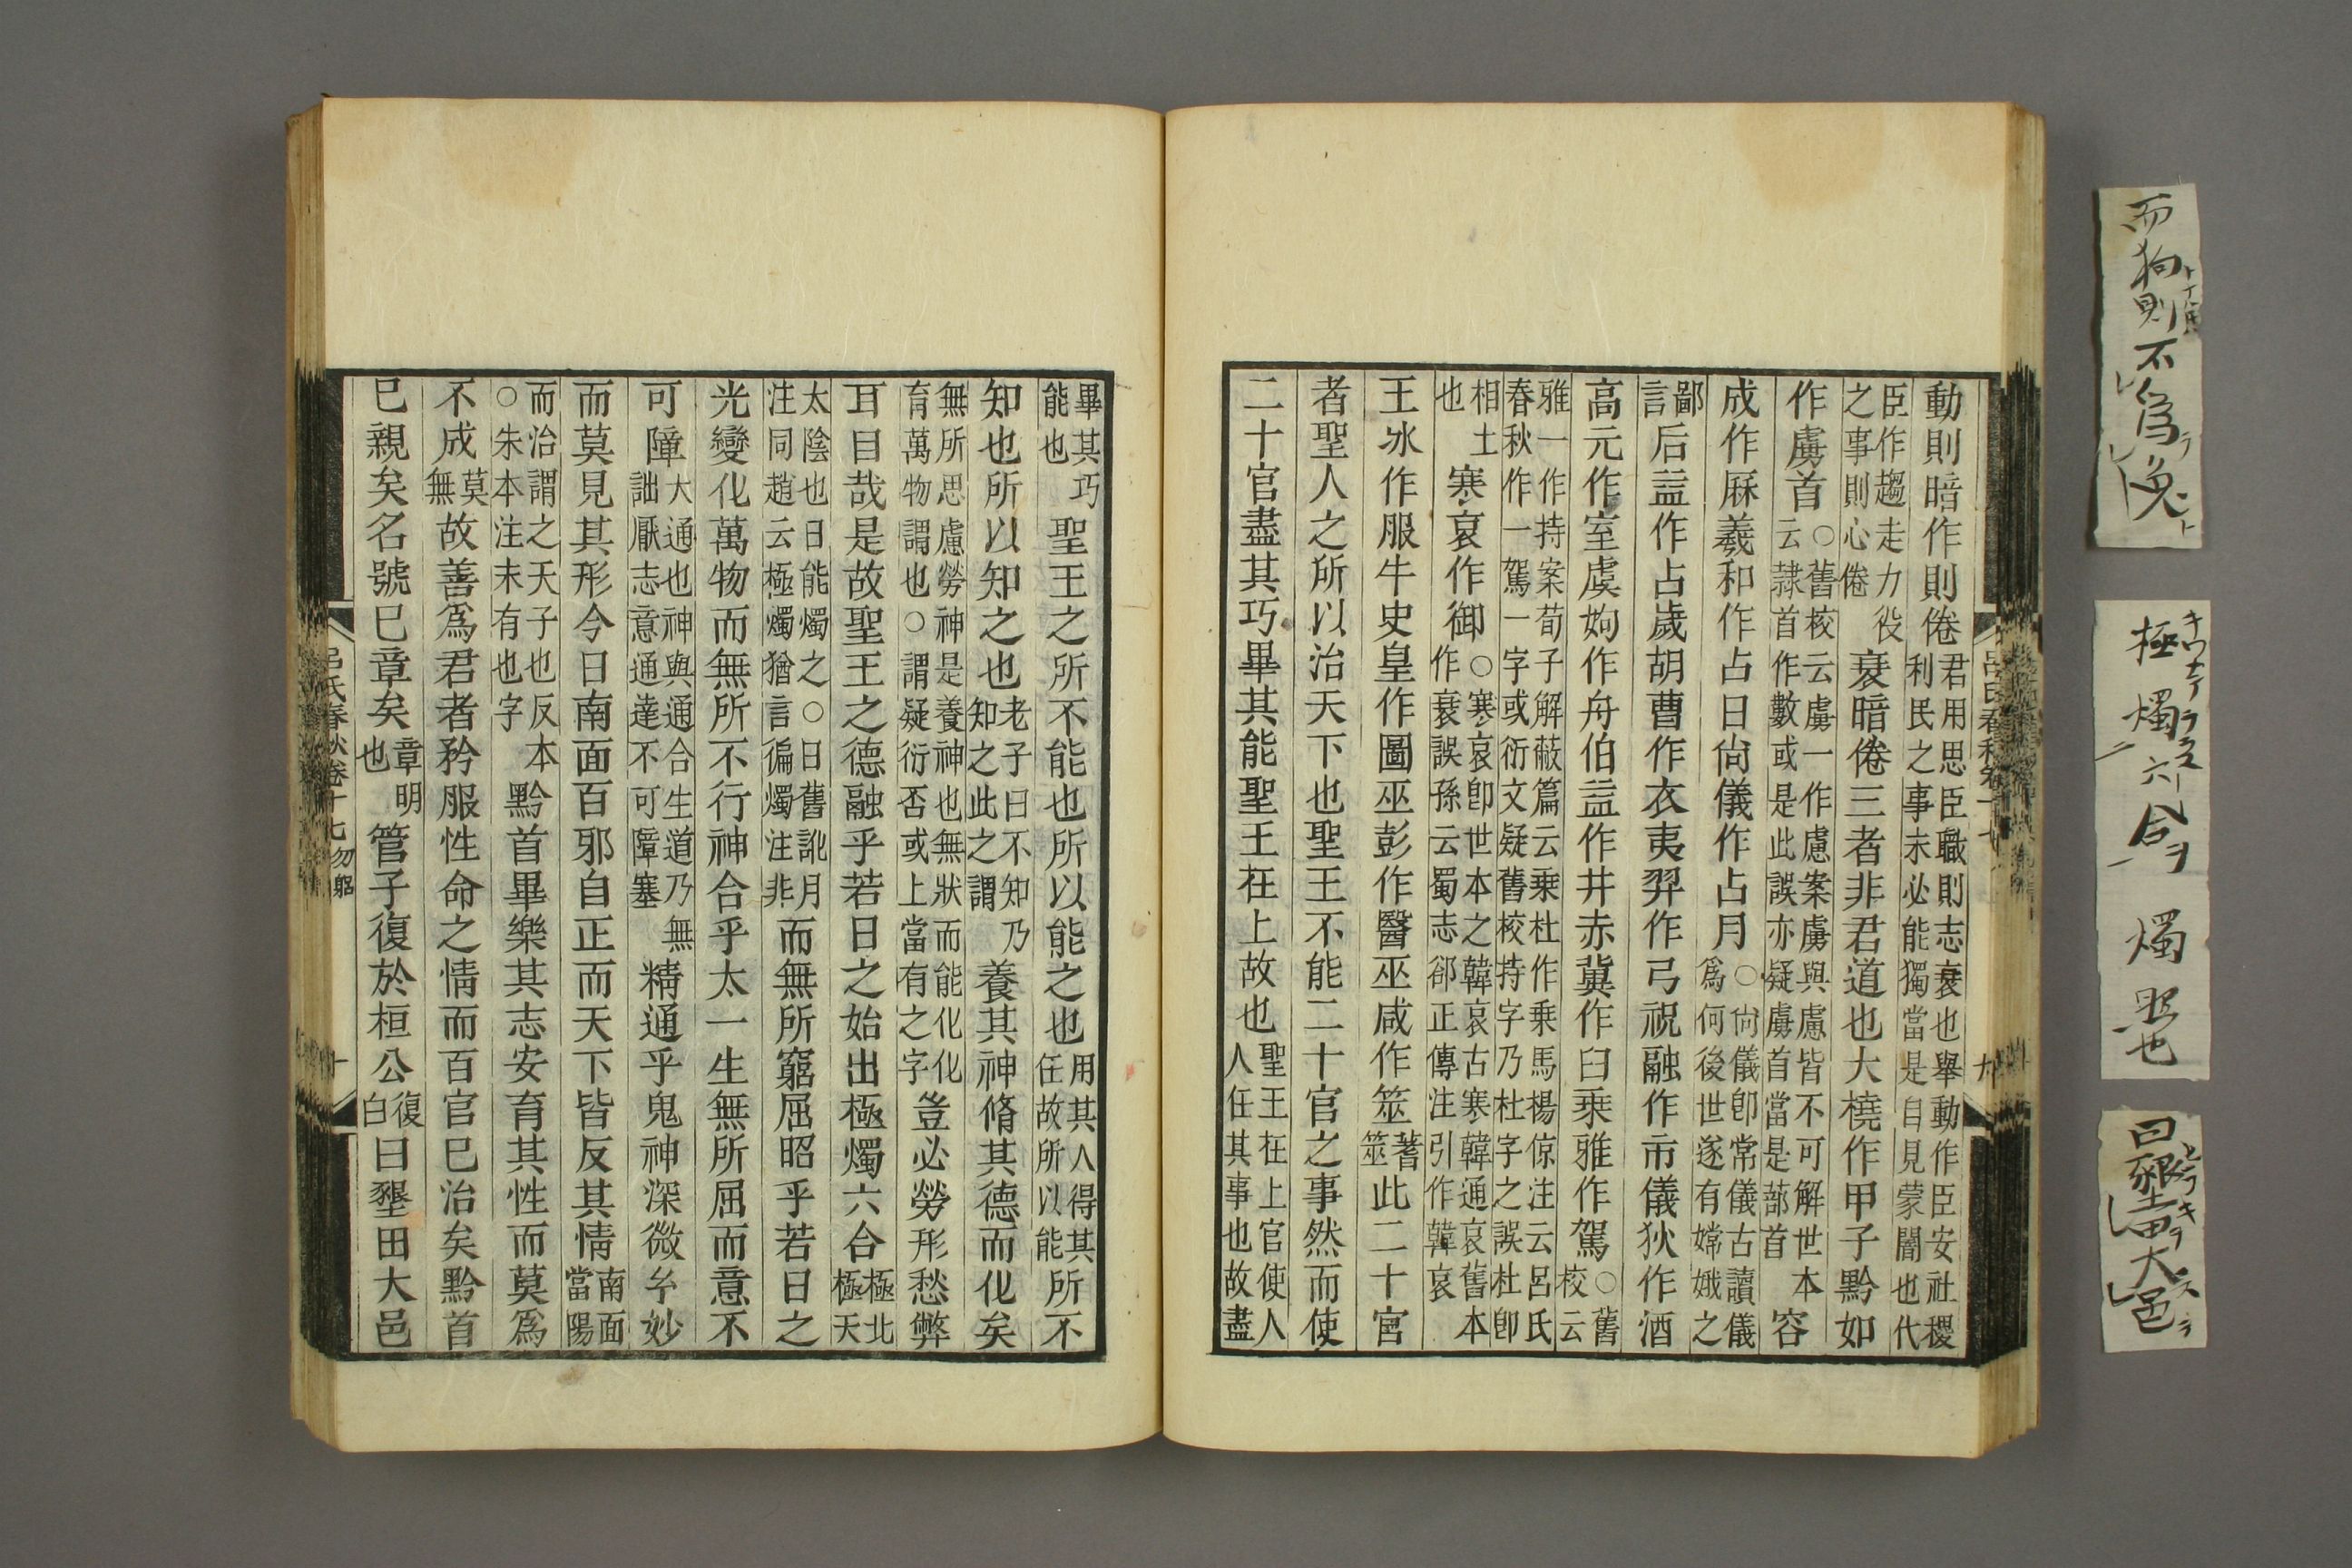 動則暗作則倦君用思臣職則志衰也舉動作臣安社稷利民之事未必能獨當是自見蒙闇也代
臣作趨走力役之事則心倦衰暗倦三者非君道也大橈作甲子黔如
作虜首○舊校云虜一作慮案虜與慮皆不可解世本云隷首作數或是此誤亦疑虜首當是蔀首容
成作厤羲和作占日尙儀作占月○尙儀卽常儀古讀儀爲何後世遂有嫦娥之
鄙言后益作占歲胡曹作衣夷羿作弓祝融作市儀狄作酒
高元作室虞姁作舟伯益作井赤冀作臼乗雅作駕○舊校云
雅一作持案荀子解蔽篇云乗杜作乗馬楊倞注云呂氏春秋作一駕一字或衍文疑舊校持字乃杜字之誤杜卽
相土也寒哀作御○寒哀卽世本之韓哀古寒韓通哀舊本作衰誤孫云蜀志郤正傳注引作韓哀
王氷作服牛史皇作圖巫彭作醫巫咸作筮蓍筮此二十官
者聖人之所以治天下也聖王不能二十官之事然而使
二十官盡其巧畢其能聖王在上故也聖王在上官使人人任其事也故盡
畢其巧能也聖王之所不能也所以能之也用其人得其任故所以能所不
知也所以知之也老子曰不知乃知之此之謂養其神脩其德而化矣
無所思慮勞神是養神也無狀而能化化育萬物謂也○謂疑衍否或上當有之字豈必勞形愁弊
耳目哉是故聖王之德融乎若日之始出極燭六合極北極天
太陰也日能燭之○日舊訛月注同趙云極燭猶言徧燭注非而無所窮屈昭乎若日之
光變化萬物而無所不行神合乎太一生無所屈而意不
可障大通也神與通合生道乃無詘厭志意通達不可障塞精通乎鬼神深微玅妙
而莫見其形今日南面百邪自正而天下皆反其情南面當陽
而治謂之天子也反本○朱本注未有也字黔首畢樂其志安育其性而莫爲
不成莫無故善爲君者矜服性命之情而百官已治矣黔首
已親矣名號已章矣章明也管子復於桓公復白曰墾田大邑
呂氏春秋卷十七 勿躬 十
而狗則不爲兔
極燭六合ヲ 燭照也
曰墾田大邑